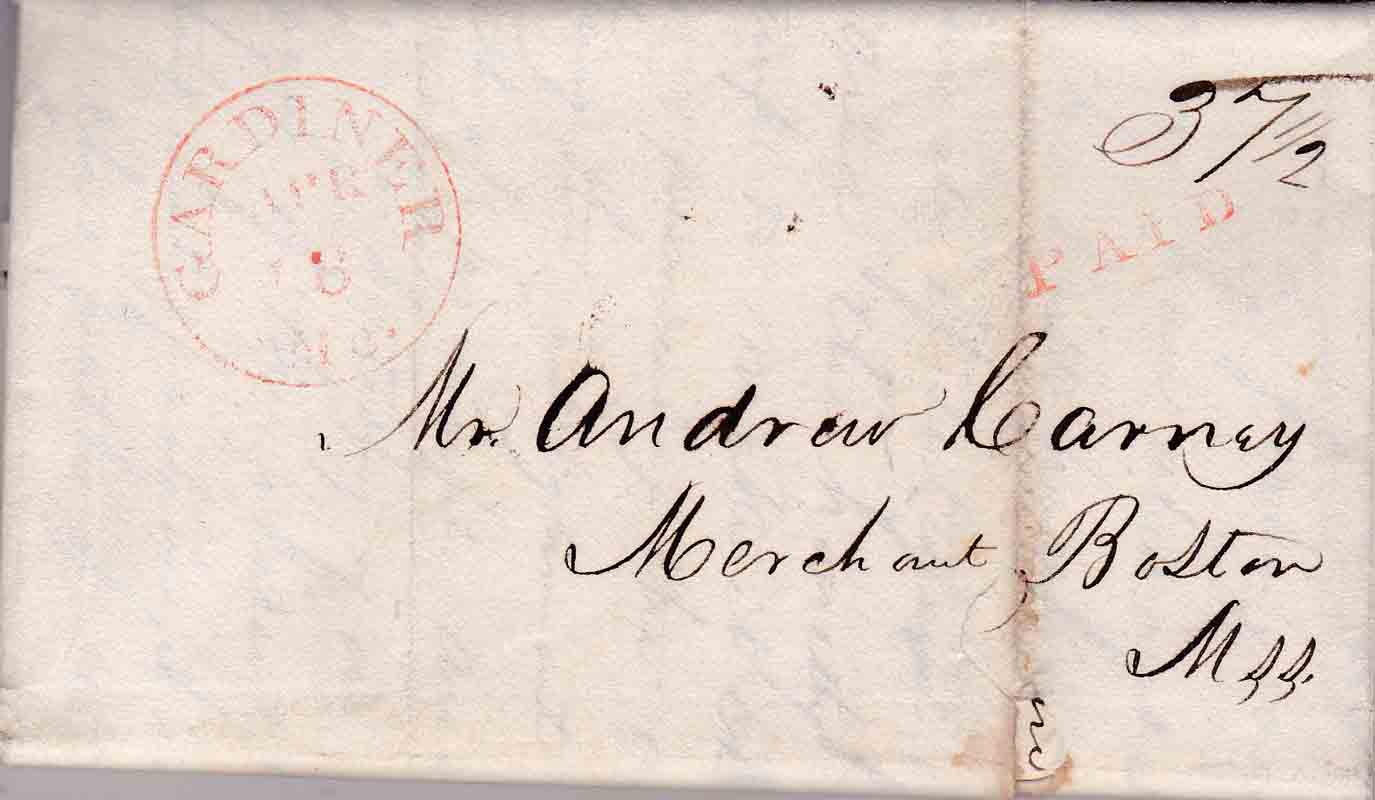 GARDINER
APR
18
Me.
37 1/2
PAID
Mr. Andrew Carney
Merchant Boston
Mss.